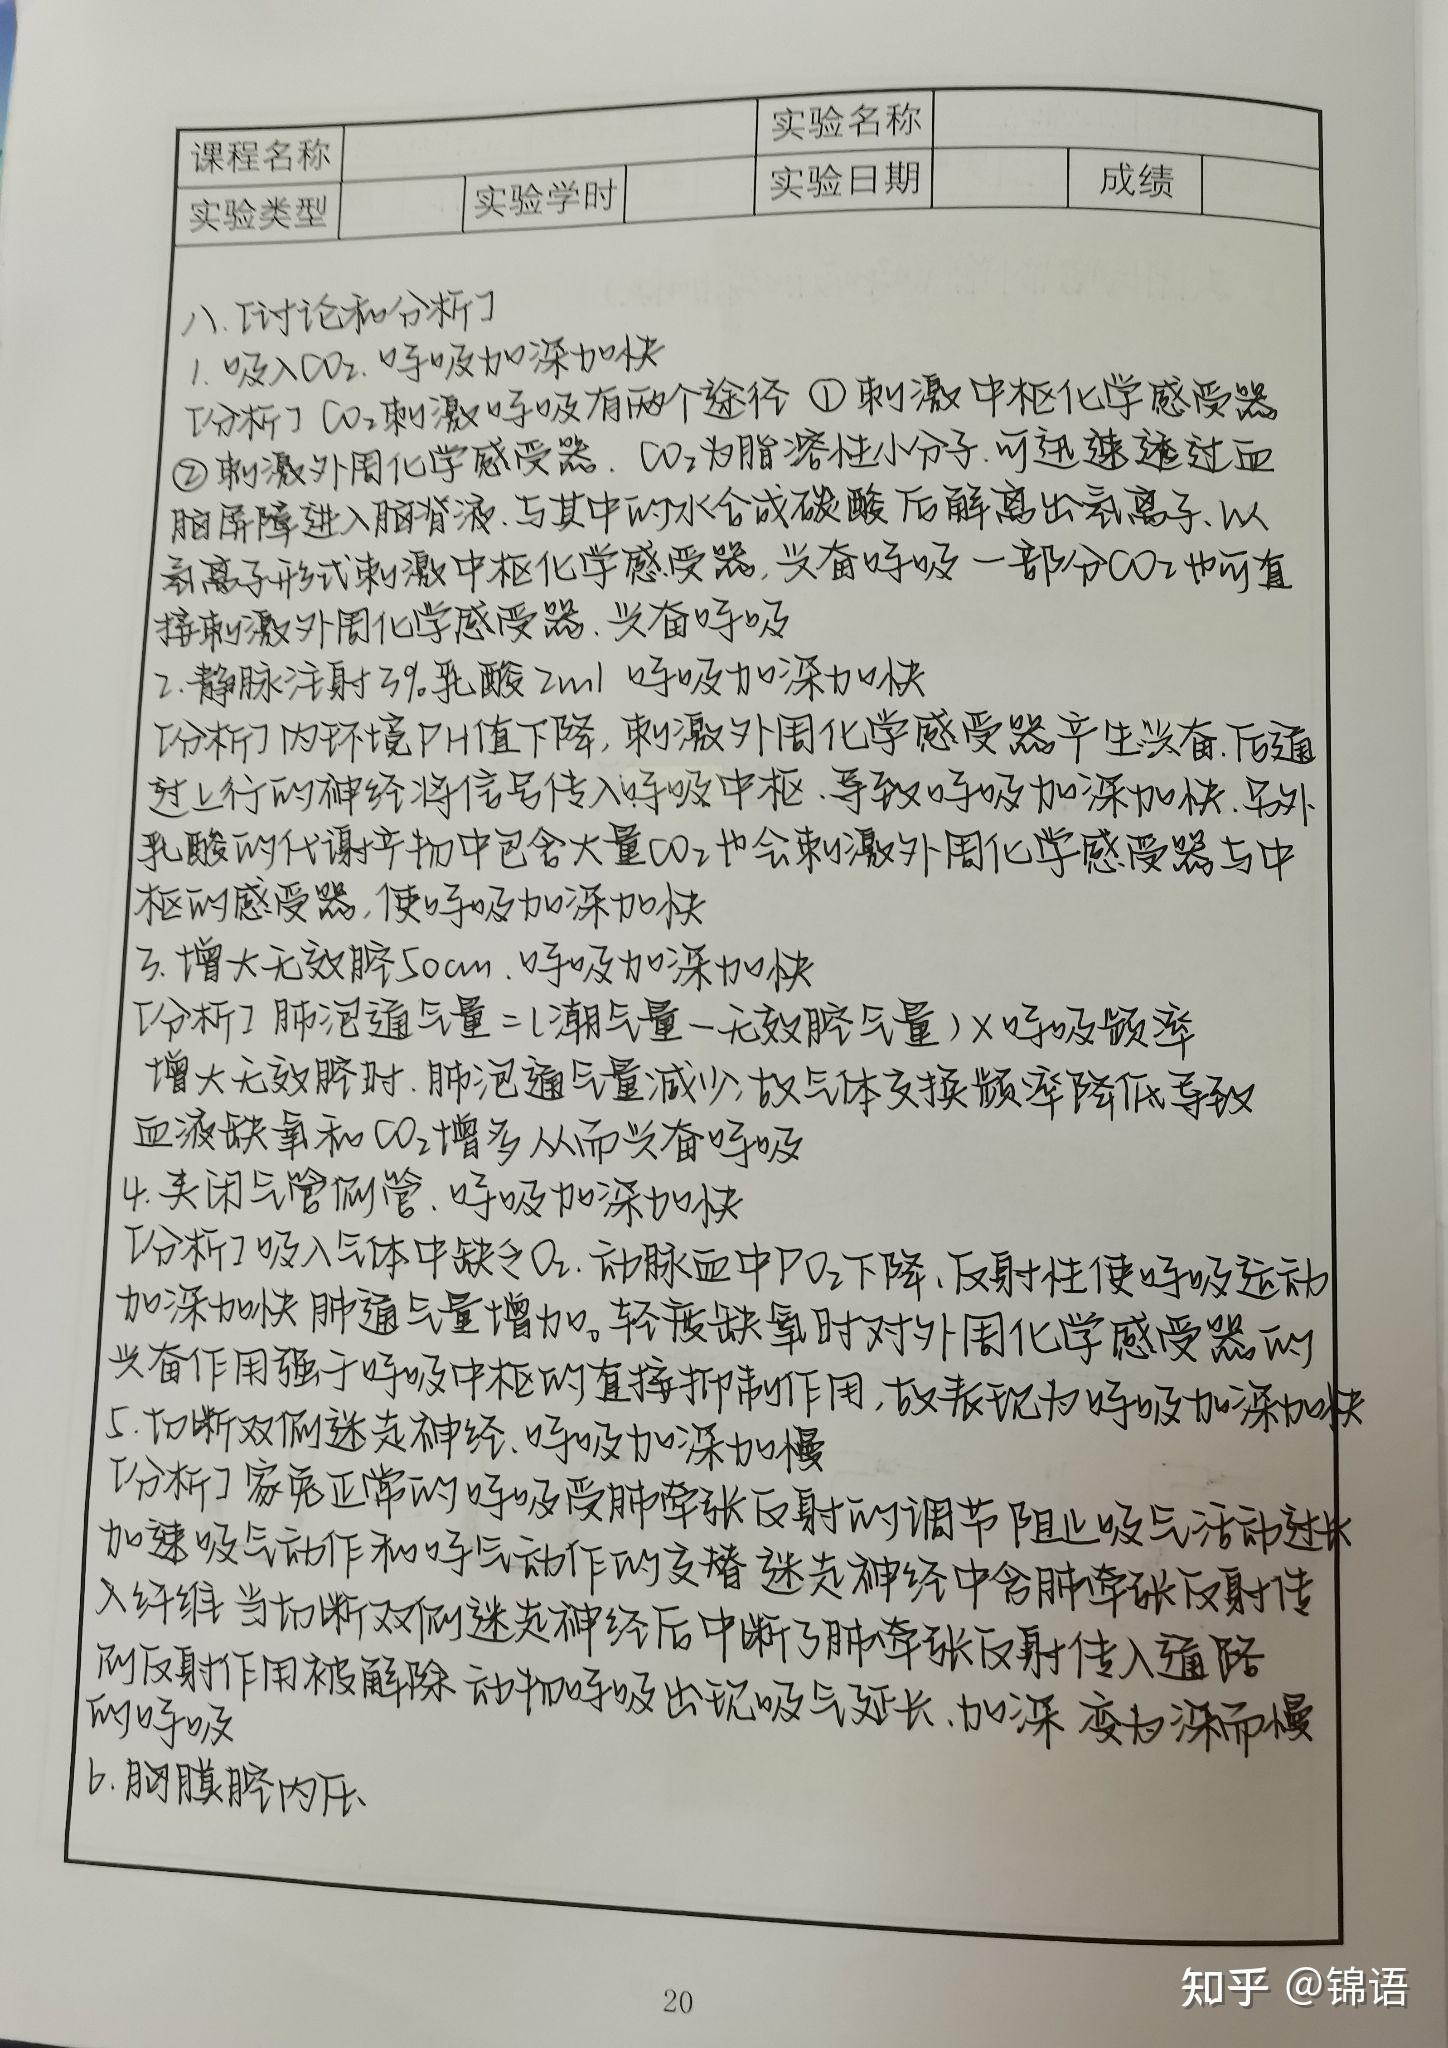 课程名称 实验名称
实验类型 实验学时 实验日期 成绩
八.[讨论和分析]
1.吸入CO₂.呼吸加深加快
[分析] CO₂刺激呼吸有两个途径 ①刺激中枢化学感受器
②刺激外周化学感受器. CO₂为脂溶性小分子.可迅速透过血
脑屏障进入脑脊液.与其中的水合成碳酸后解离出氢离子、以
氢离子形式刺激中枢化学感受器,兴奋呼吸 一部分CO₂也可直
接刺激外周化学感受器.兴奋呼吸
2.静脉注射3%乳酸2ml 呼吸加深加快
[分析]内环境PH值下降,刺激外周化学感受器产生兴奋.后通
过上行的神经将信号传入呼吸中枢.导致呼吸加深加快.另外
乳酸的代谢产物中包含大量CO₂也会刺激外周化学感受器与中
枢的感受器,使呼吸加深加快
3.增大无效腔50cm.呼吸加深加快
[分析] 肺泡通气量=(潮气量-无效腔气量)×呼吸频率
增大无效腔时.肺泡通气量减少,故气体交换频率降低导致
血液缺氧和CO₂增多从而兴奋呼吸
4.夹闭气管侧管.呼吸加深加快
[分析]吸入气体中缺乏O₂.动脉血中PO₂下降、反射性使呼吸运动
加深加快 肺通气量增加。轻度缺氧时对外周化学感受器的
兴奋作用强于呼吸中枢的直接抑制作用,故表现为呼吸加深加快
5.切断双侧迷走神经.呼吸加深加慢
[分析]家兔正常的呼吸受肺牵张反射的调节 阻止吸气活动过长
加速吸气动作和呼气动作的交替 迷走神经中含肺牵张反射传
入纤维 当切断双侧迷走神经后中断了肺牵张反射传入通路
则反射作用被解除 动物呼吸出现吸气延长、加深 变为深而慢
的呼吸
6.胸膜腔内压、
20
知乎 @锦语